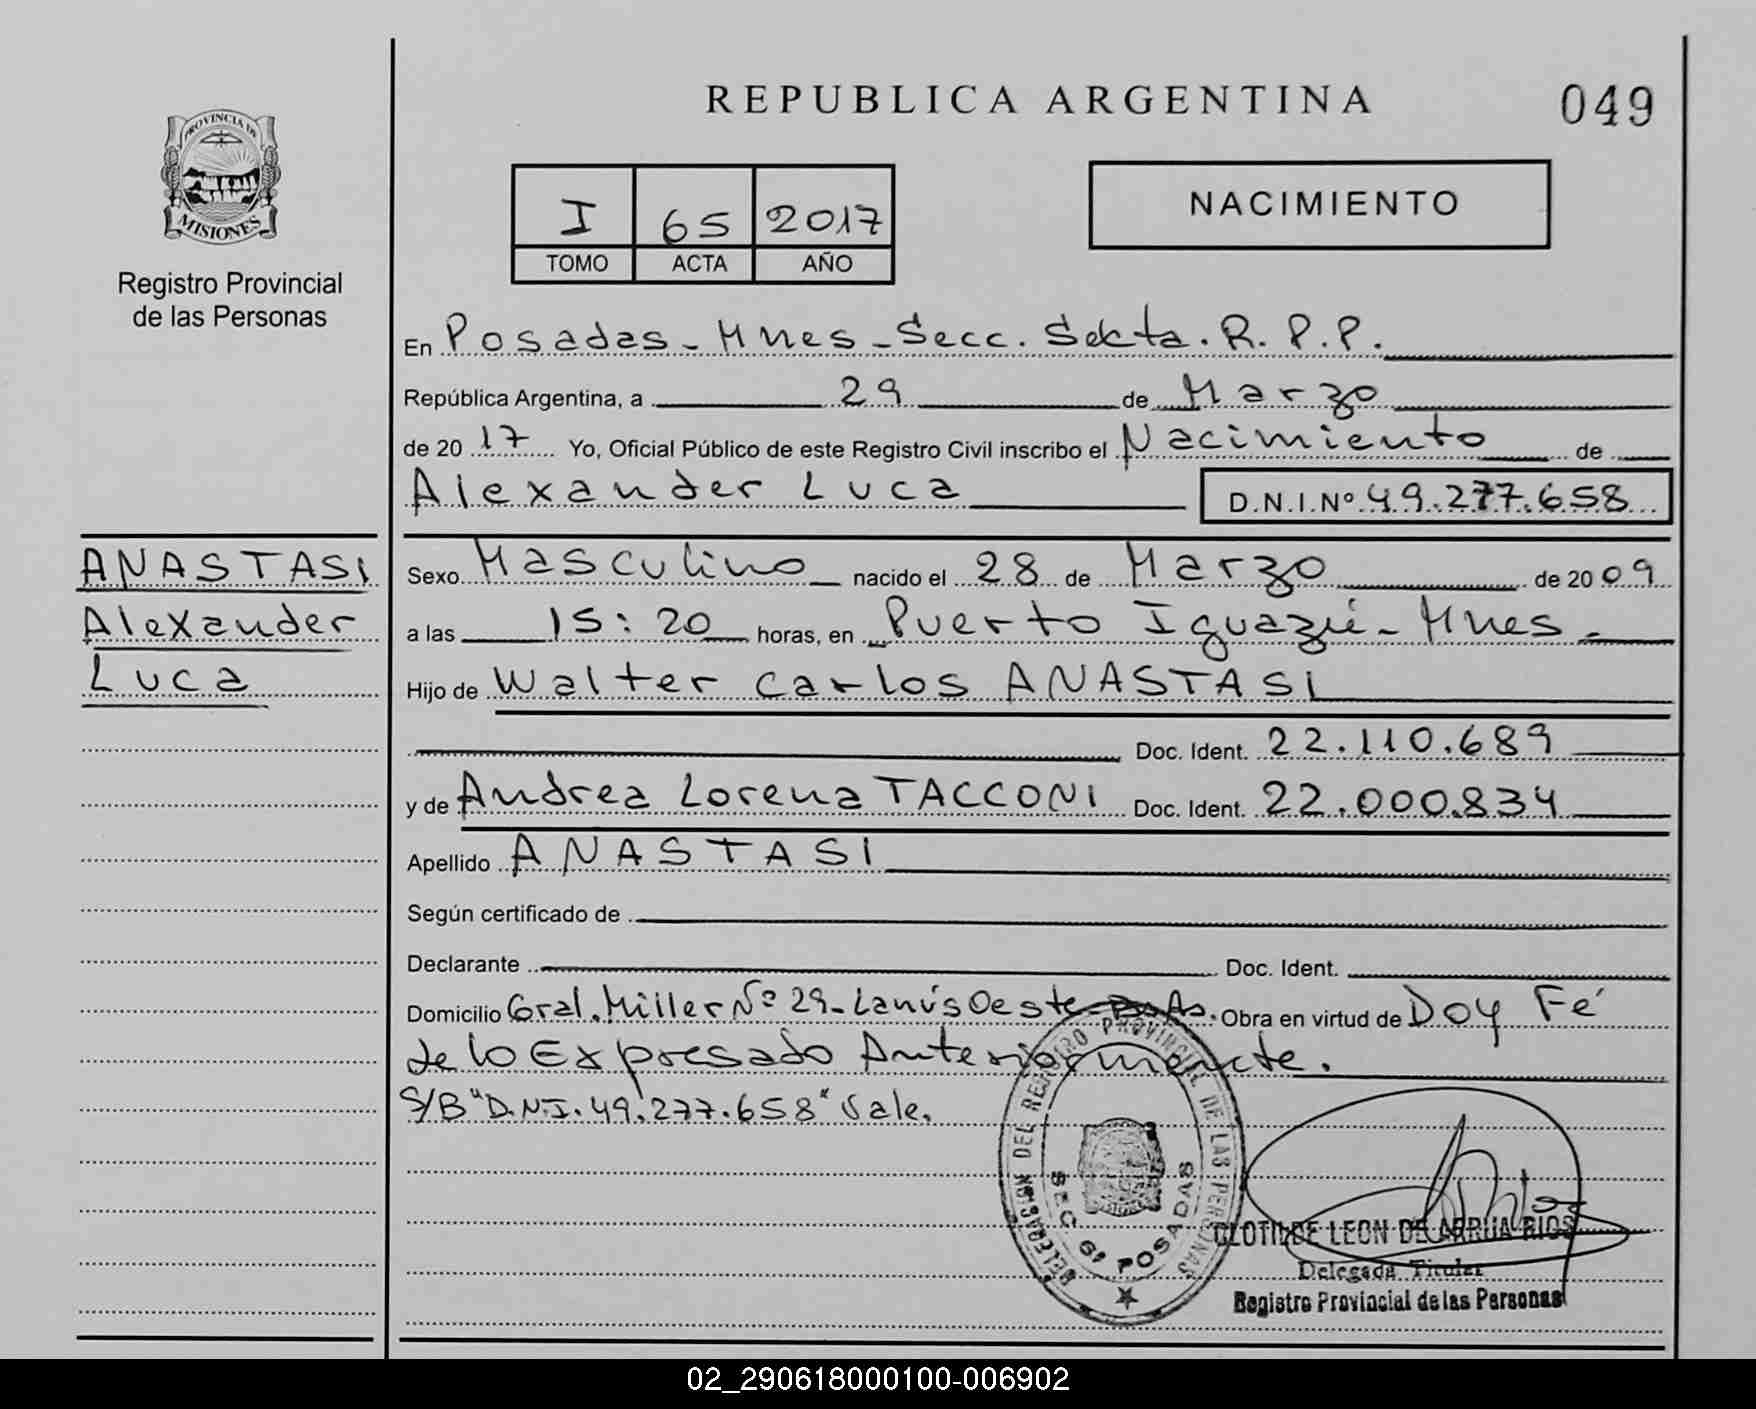 REPUBLICA ARGENTINA
049
PROVINCIA DE
MISIONES
Registro Provincial
de las Personas
I 65 2017
TOMO ACTA AÑO
NACIMIENTO
En Posadas - Mnes - Secc. Sexta. R. P. P.
República Argentina, a 29 de Marzo
de 2017 Yo, Oficial Público de este Registro Civil inscribo el Nacimiento de
Alexander Luca D.N.I.Nº 49.277.658
ANASTASI
Alexander
Luca
Sexo Masculino nacido el 28 de Marzo de 2009
a las 15:20 horas, en Puerto Iguazú - Mnes -
Hijo de Walter Carlos ANASTASI
Doc. Ident. 22.110.689
y de Andrea Lorena TACCONI Doc. Ident. 22.000.834
Apellido ANASTASI
Según certificado de
Declarante Doc. Ident.
Domicilio Gral. Miller Nº 29 - Lanús Oeste - Bs As. Obra en virtud de Doy Fé
de lo Expresado Anteriormente.
S/B "D.N.I. 49.277.658" Vale.
DELEGACION DEL REGISTRO PROVINCIAL DE LAS PERSONAS
SEC. 6ª POSADAS
CLOTILDE LEON DE ARRUA RIOS
Delegada Titular
Registro Provincial de las Personas
02_290618000100-006902